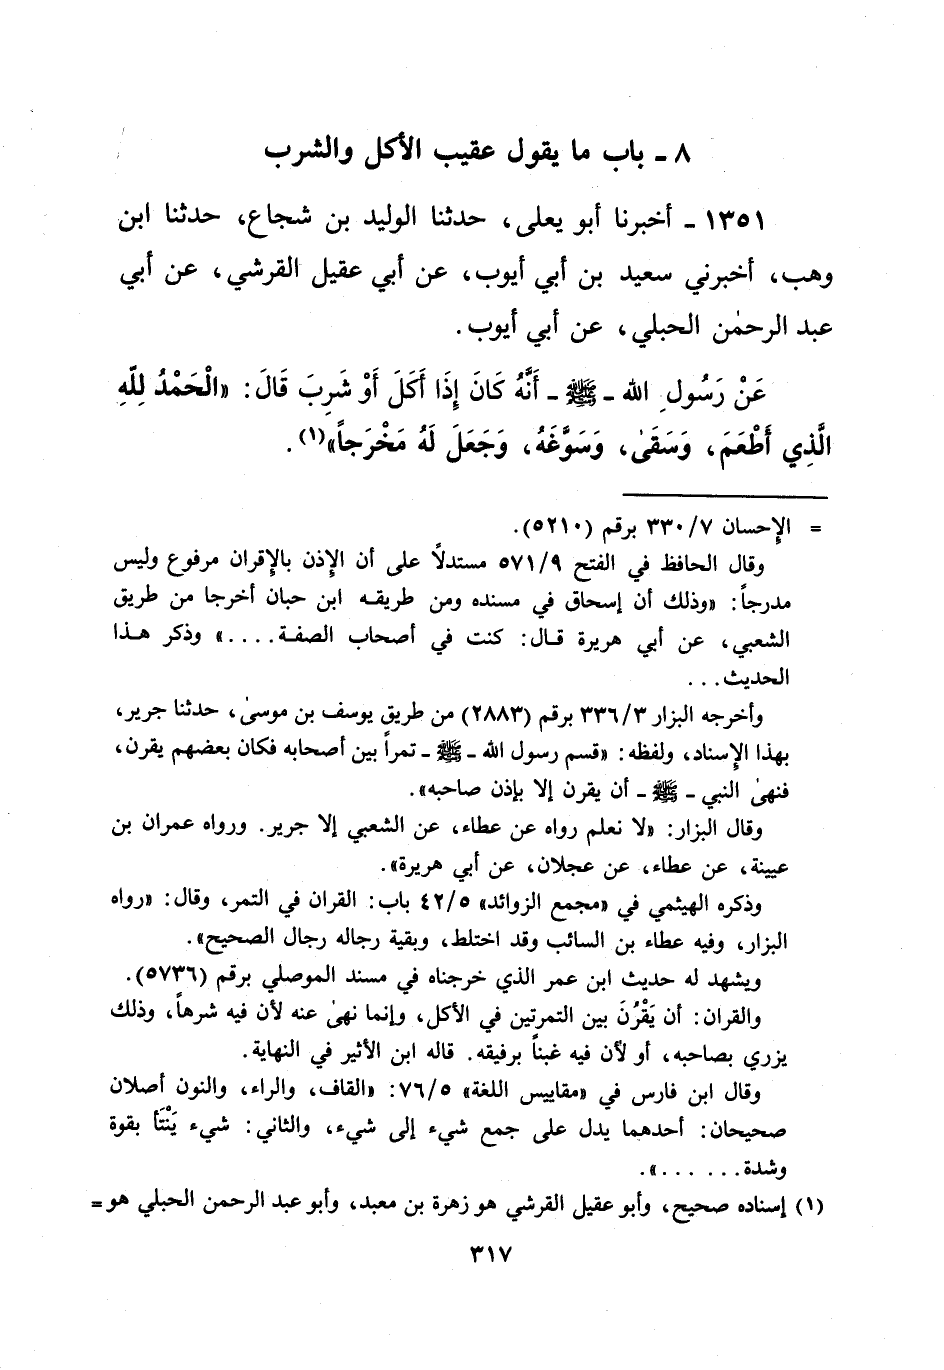 ٨ ـ باب ما يقول عقيب الأكل والشرب
١٣٥١ ـ أخبرنا أبو يعلى، حدثنا الوليد بن شجاع، حدثنا ابن
وهب، أخبرني سعيد بن أبي أيوب، عن أبي عقيل القرشي، عن أبي
عبد الرحمٰن الحبلي، عن أبي أيوب.
عَنْ رَسُولِ الله ـ ﷺ ـ أَنَّهُ كَانَ إِذَا أَكَلَ أَوْ شَرِبَ قَالَ: «الْحَمْدُ لِلّهِ
الَّذِي أَطْعَمَ، وَسَقىٰ، وَسَوَّغَهُ، وَجَعَلَ لَهُ مَخْرَجاً»(١).
= الإحسان ٣٣٠/٧ برقم (٥٢١٠).
وقال الحافظ في الفتح ٥٧١/٩ مستدلاً على أن الإذن بالإقران مرفوع وليس
مدرجاً: «وذلك أن إسحاق في مسنده ومن طريقه ابن حبان أخرجا من طريق
الشعبي، عن أبي هريرة قال: كنت في أصحاب الصفة....» وذكر هذا
الحديث...
وأخرجه البزار ٣٣٦/٣ برقم (٢٨٨٣) من طريق يوسف بن موسىٰ، حدثنا جرير،
بهذا الإسناد، ولفظه: «قسم رسول الله ـ ﷺ ـ تمراً بين أصحابه فكان بعضهم يقرن،
فنهىٰ النبي ـ ﷺ ـ أن يقرن إلا بإذن صاحبه».
وقال البزار: «لا نعلم رواه عن عطاء، عن الشعبي إلا جرير. ورواه عمران بن
عيينة، عن عطاء، عن عجلان، عن أبي هريرة».
وذكره الهيثمي في «مجمع الزوائد» ٤٢/٥ باب: القران في التمر، وقال: «رواه
البزار، وفيه عطاء بن السائب وقد اختلط، وبقية رجاله رجال الصحيح».
ويشهد له حديث ابن عمر الذي خرجناه في مسند الموصلي برقم (٥٧٣٦).
والقران: أن يَقْرُنَ بين التمرتين في الأكل، وإنما نهىٰ عنه لأن فيه شرهاً، وذلك
يزري بصاحبه، أو لأن فيه غبناً برفيقه. قاله ابن الأثير في النهاية.
وقال ابن فارس في «مقاييس اللغة» ٧٦/٥: «القاف، والراء، والنون أصلان
صحيحان: أحدهما يدل على جمع شيء إلى شيء، والثاني: شيء يَنْتَأ بقوة
وشدة......».
(١) إسناده صحيح، وأبو عقيل القرشي هو زهرة بن معبد، وأبو عبد الرحمن الحبلي هو =
٣١٧